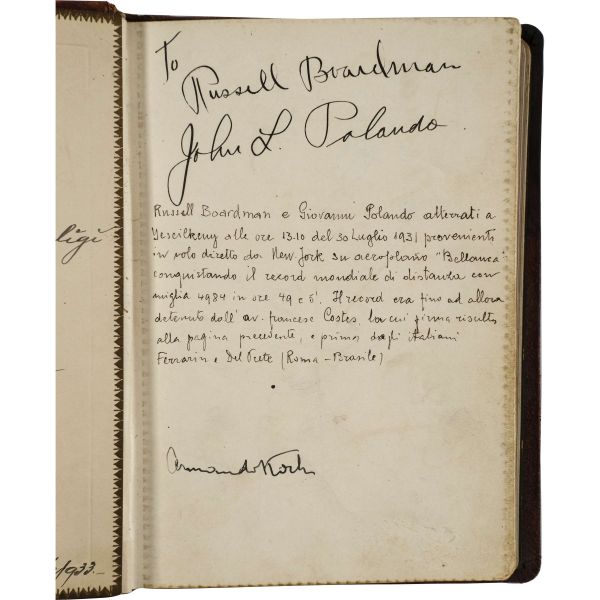 To
Russell Boardman
John L. Polando
Russell Boardman e Giovanni Polando atterrati a
Yescilkeny alle ore 13.10 del 30 Luglio 1931 provenienti
in volo diretto da New Jork su aeroplano "Bellanca"
conquistando il record mondiale di distanza con
miglia 4984 in ore 49 e 5'. Il record era fino ad allora
detenuto dall' av. francese Costes, la cui firma risulta
alla pagina precedente, e prima dagli italiani
Ferrarin e Del Prete (Roma-Brasile)
Armando Koch
ligi
1933.-